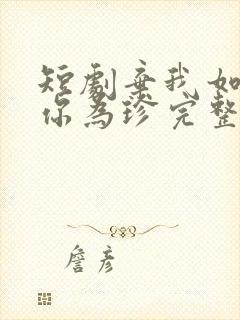 短劇棄我如
你為珍完整
詹彥